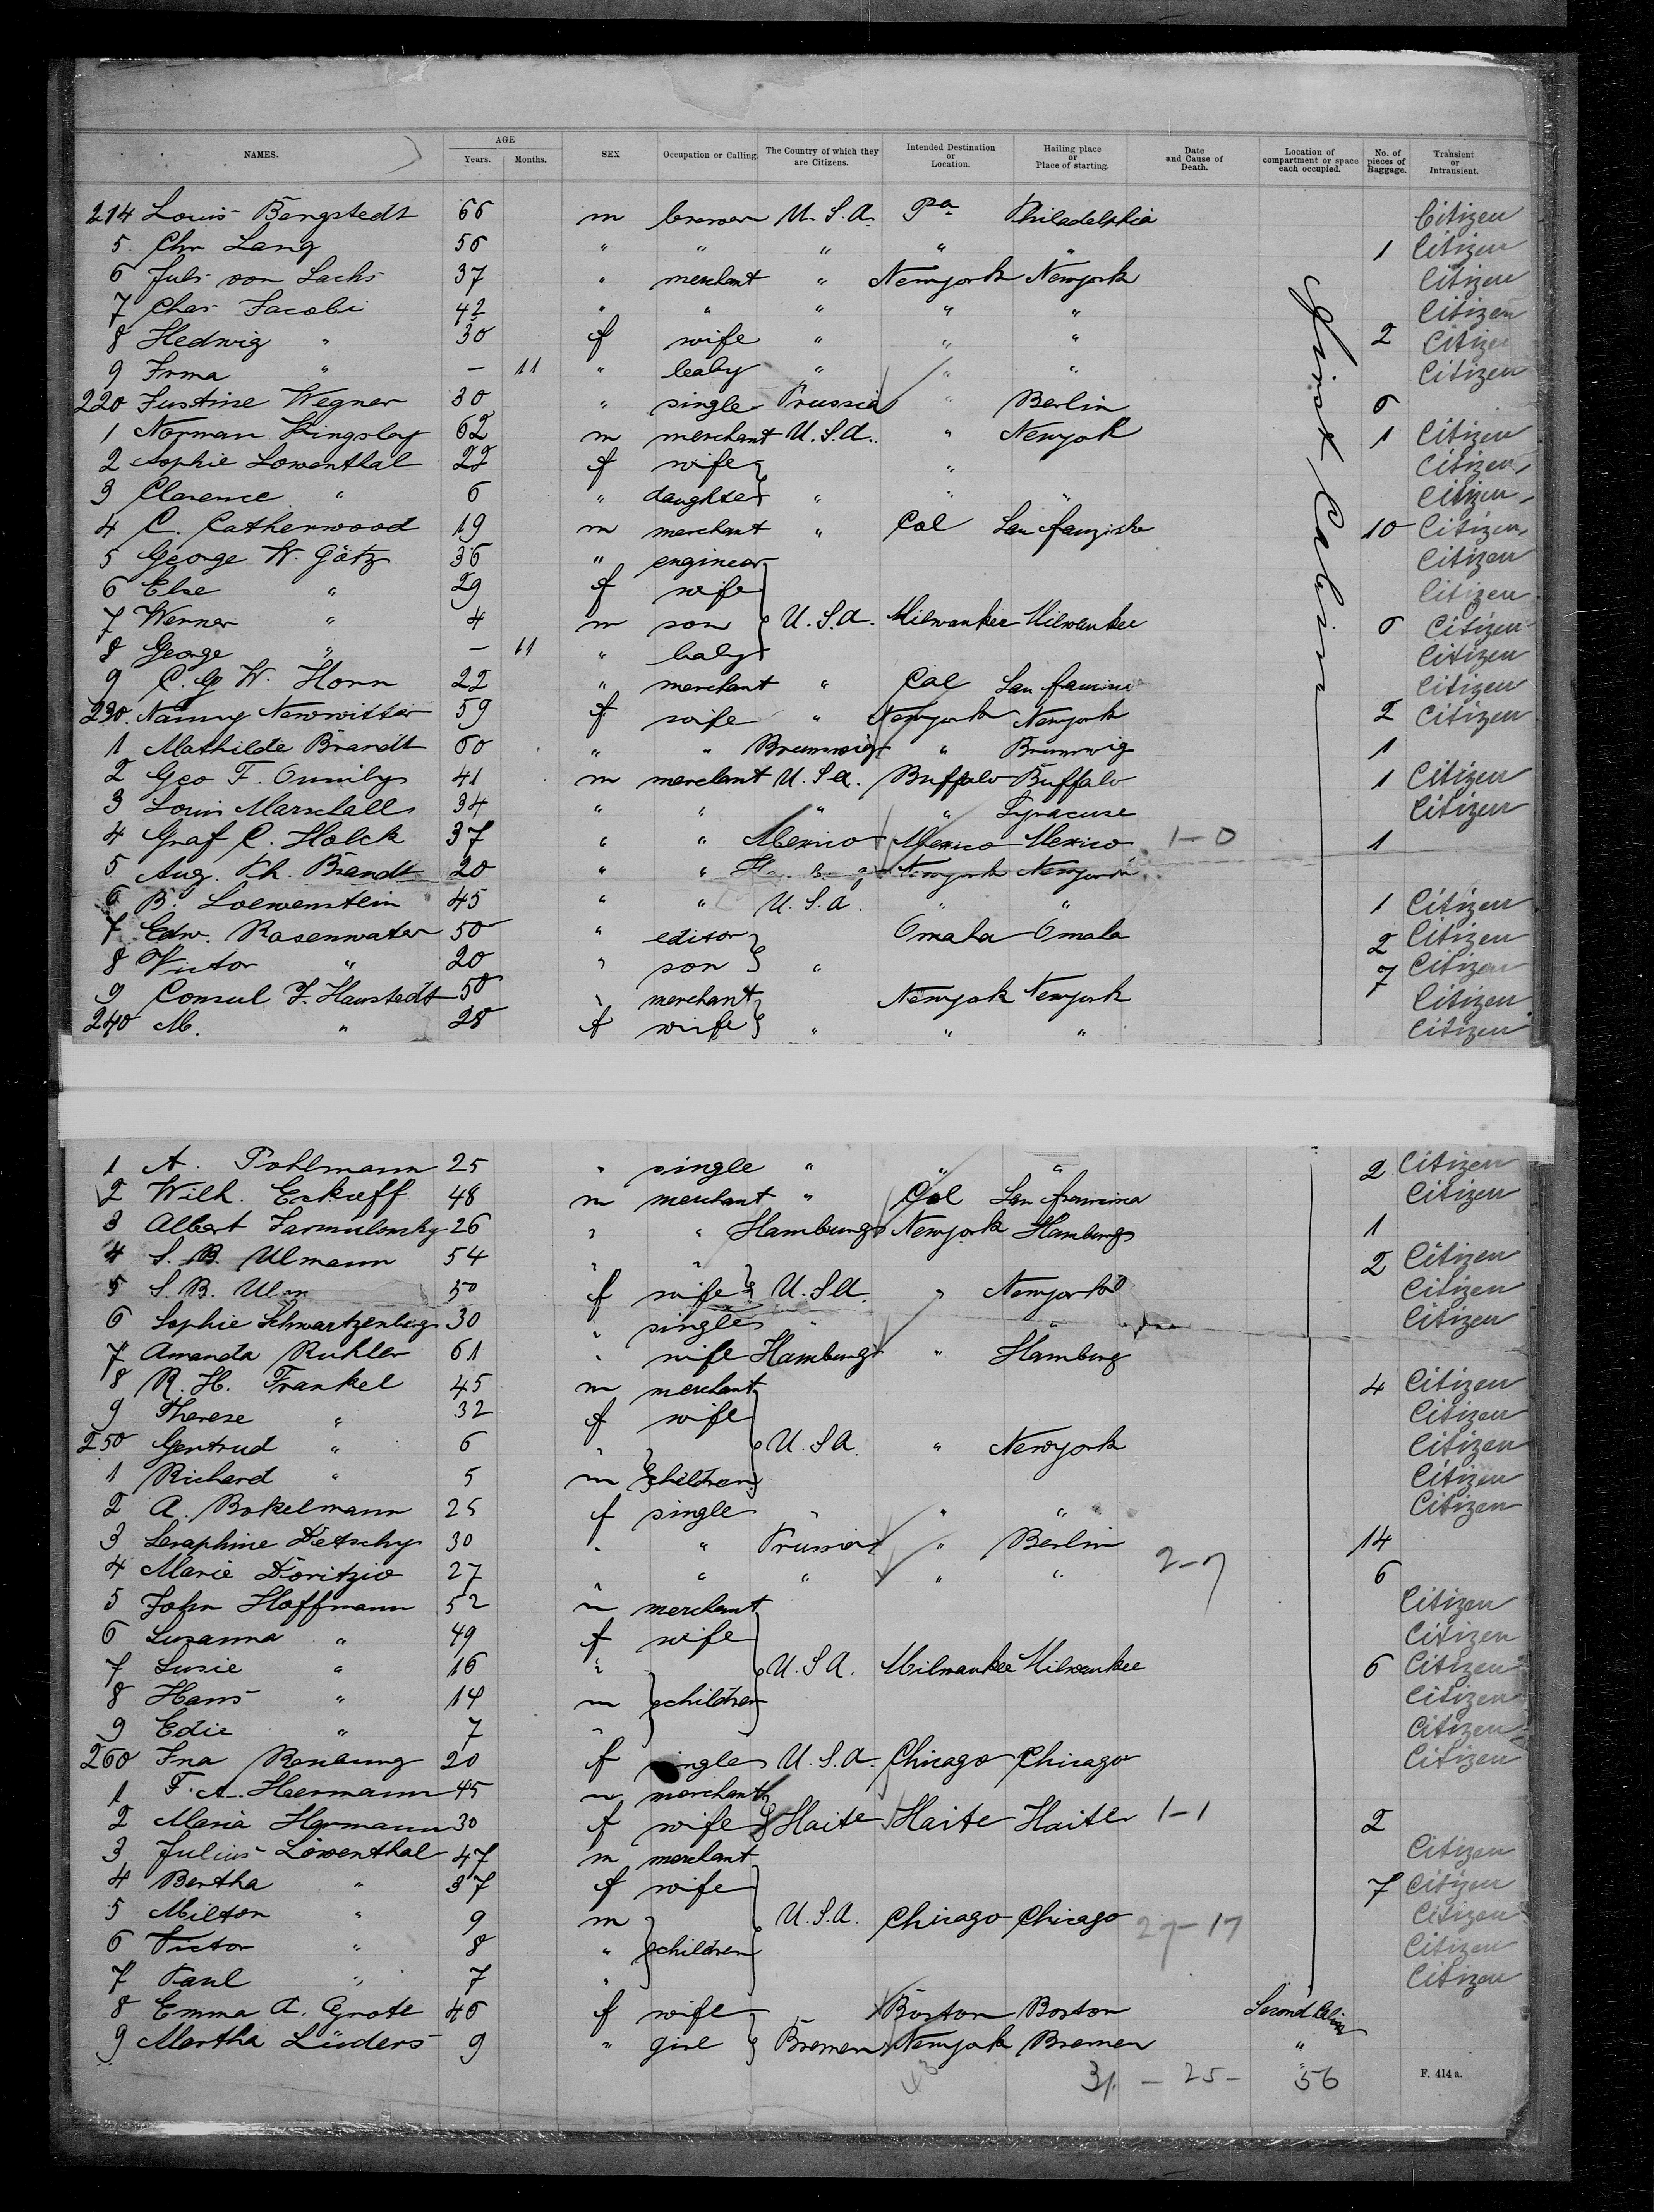 NAMES. AGE Years. Months. SEX Occupation or Calling. The Country of which they are Citizens. Intended Destination or Location. Hailing place or Place of starting. Date and Cause of Death. Location of compartment or space each occupied. No. of pieces of Baggage. Transient or Intransient.
214 Louis Bengstedt 66 m brewer U. S. A. Pa Philadelphia Citizen
5 Chr Lang 56 " " " " " 1 Citizen
6 Juls von Sachs 37 " merchant " Newyork Newyork Citizen
7 Chas Jacobi 42 " " " " " Citizen
8 Hedwig " 30 f wife " " " 2 Citizen
9 Irma " – 11 " baby " " " Citizen
220 Justine Wegner 30 " single Prussia " Berlin 6
1 Norman Kingsley 62 m merchant U. S. A. " Newyok 1 Citizen
2 Sophie Lowenthal 22 f wife " Citizen
3 Clarence " 6 " daughter " " " Citizen
4 C. Catherwood 19 m merchant " Cal San 10 Citizen
5 George W. Götz 36 " engineer Citizen
6 Else " 29 f wife Citizen
7 Werner " 4 m son U. S. A. Milwaukee Milwaukee 6 Citizen
8 George " – 11 " baby Citizen
9 C. G. W. Horn 22 " merchant " Cal San Citizen
230. Nanny Newwitter 59 f wife " Newyork Newyork 2 Citizen
1 Mathilde Brandt 60 " " " 1
2 Geo F. 41 m merchant U. S. A. Buffalo Buffalo 1 Citizen
3 Louis Marschall 34 " " " " Syracuse Citizen
4 Graf C. Holck 37 " " Mexico Mexico Mexico 1-0 1
5 Aug. Ph. Brandt 20 " " Newyork Newyork
6 B. Loewenstein 45 " " U. S. A. " " 1 Citizen
7 Edw. Rosenwater 50 " editor Omaha Omaha 2 Citizen
8 Victor " 20 " son " 7 Citizen
9 Consul F. Haustedt 50 " merchant Newyok Newyork Citizen
240 M. " 28 f wife " " " Citizen
1 A. Pohlmann 25 " single " " " 2 Citizen
2 Wilh. Eckoff 48 m merchant " Cal San Citizen
3 Albert Jarmulowsky 26 " " Hamburg Newyork Hamburg 1
4 S. B. Ulmann 54 " " 2 Citizen
5 S. B. 50 f wife U. S. A. " Newyork Citizen
6 Sophie Schwartzenberg 30 " single " " Citizen
7 Amanda Ruhler 61 " wife Hamburg " Hamburg
8 R. H. Frankel 45 m merchant 4 Citizen
9 Therese " 32 f wife Citizen
250 Gertrud " 6 " U. S. A. " Newyork Citizen
1 Richard " 5 m children Citizen
2 A. Bokelmann 25 f single " " " Citizen
3 Seraphine Detschy 30 " " Prussia " Berlin 14
4 Marie Döritzio 27 " " " " " 2-7 6
5 John Hoffmann 52 m merchant Citizen
6 Susanna " 49 f wife Citizen
7 Susie " 16 " U. S. A. Milwaukee Milwaukee 6 Citizen
8 Hans " 14 m children Citizen
9 Edie " 7 " Citizen
260 Ina 20 f single U. S. A. Chicago Chicago Citizen
1 F. A. Heermann 45 m merchant
2 Maria Harmann 30 f wife Haite Haite Haite 1-1 2
3 Julius Löwenthal 47 m merchant Citizen
4 Bertha " 37 f wife 7 Citizen
5 Milton " 9 m U. S. A. Chicago Chicago 27-17 Citizen
6 Victor " 8 " children Citizen
7 Paul " 7 " Citizen
8 Emma A. Grote 46 f wife Boston Boston Second Cabin
9 Martha Lüders 9 " girl Bremen Newyok Bremen "
31 – 25 – 56
F. 414 a.
First Cabin